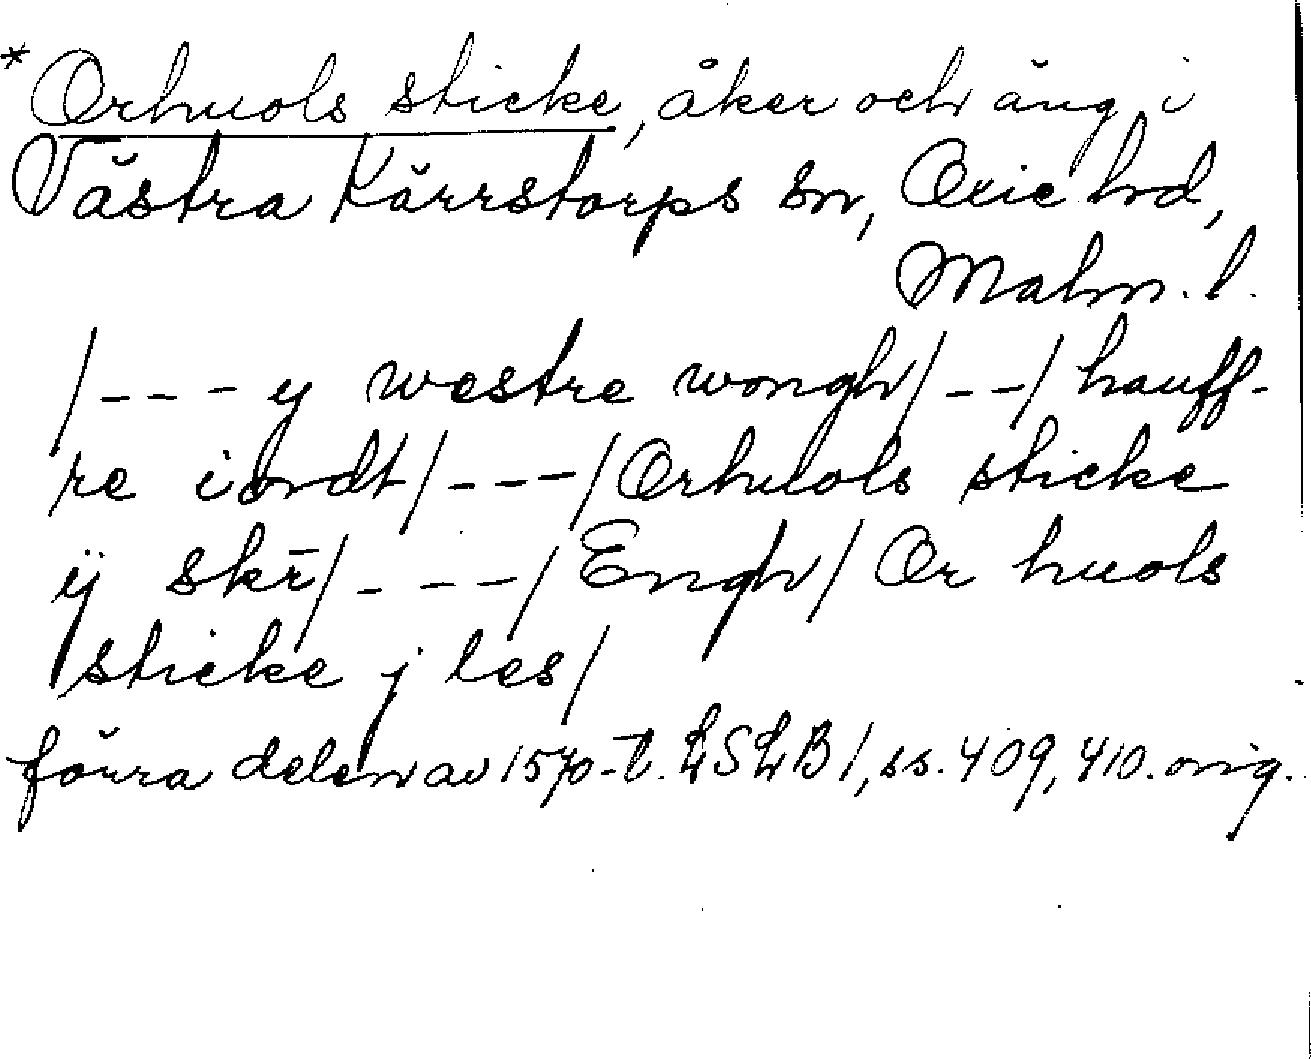 *Orhuols sticke, åker och äng i
Västra Kärrstorps sn, Oxie hd,
Malm. l.
/--- y westre wongh/--/hauff-
re iordt/---/Orhuols sticke
ÿ skr̄/---/Engh/Or huols
sticke j les/
förra delen av 1570-t. LSLB 1, ss. 409, 410. orig.